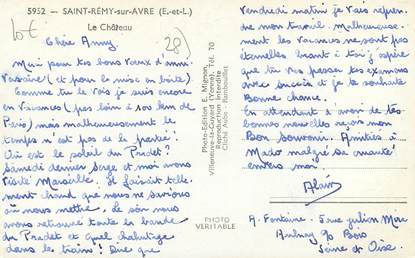 5952 - SAINT-RÉMY-sur-AVRE (E.-et-L.)
Le Château
10€
28)
Chère Anny
Merci pour tes bons voeux d'anni-
versaire (et pour la mise en boîte).
Comme tu le vois je suis encore
en vacances (pas loin à 100 km de
Paris) mais malheureusement le
temps n'est pas de la partie!
Où est le soleil du Pradet?
Samedi dernier Serge et moi avons
quitté Marseille. Il faisait telle-
ment chaud que nous ne savions
où nous mettre. Le soir nous
avons retrouvé toute la bande
du Pradet et quel chahutage
dans le train! Dire que
Photo-Edition E. Mignon
Villeneuve-le-Guyard (Yonne). Tél. 70
Reproduction interdite
Cliché Aubin - Rambouillet
PHOTO
VERITABLE
Vendredi matin je vais repren-
dre mon travail. Malheureuse-
ment les vacances ne sont pas
éternelles. Quant à toi j'espère
que tu vas passer tes examens
avec succès et je te souhaite
Bonne chance.
En attendant d'avoir de tes
bonnes nouvelles reçois mon
Bon Souvenir. Amitiés à
Mado malgré sa cruauté
envers moi.
Alain
A. Fontaine - 5 rue Julien Mira
Aulnay s/s Bois
Seine et Oise